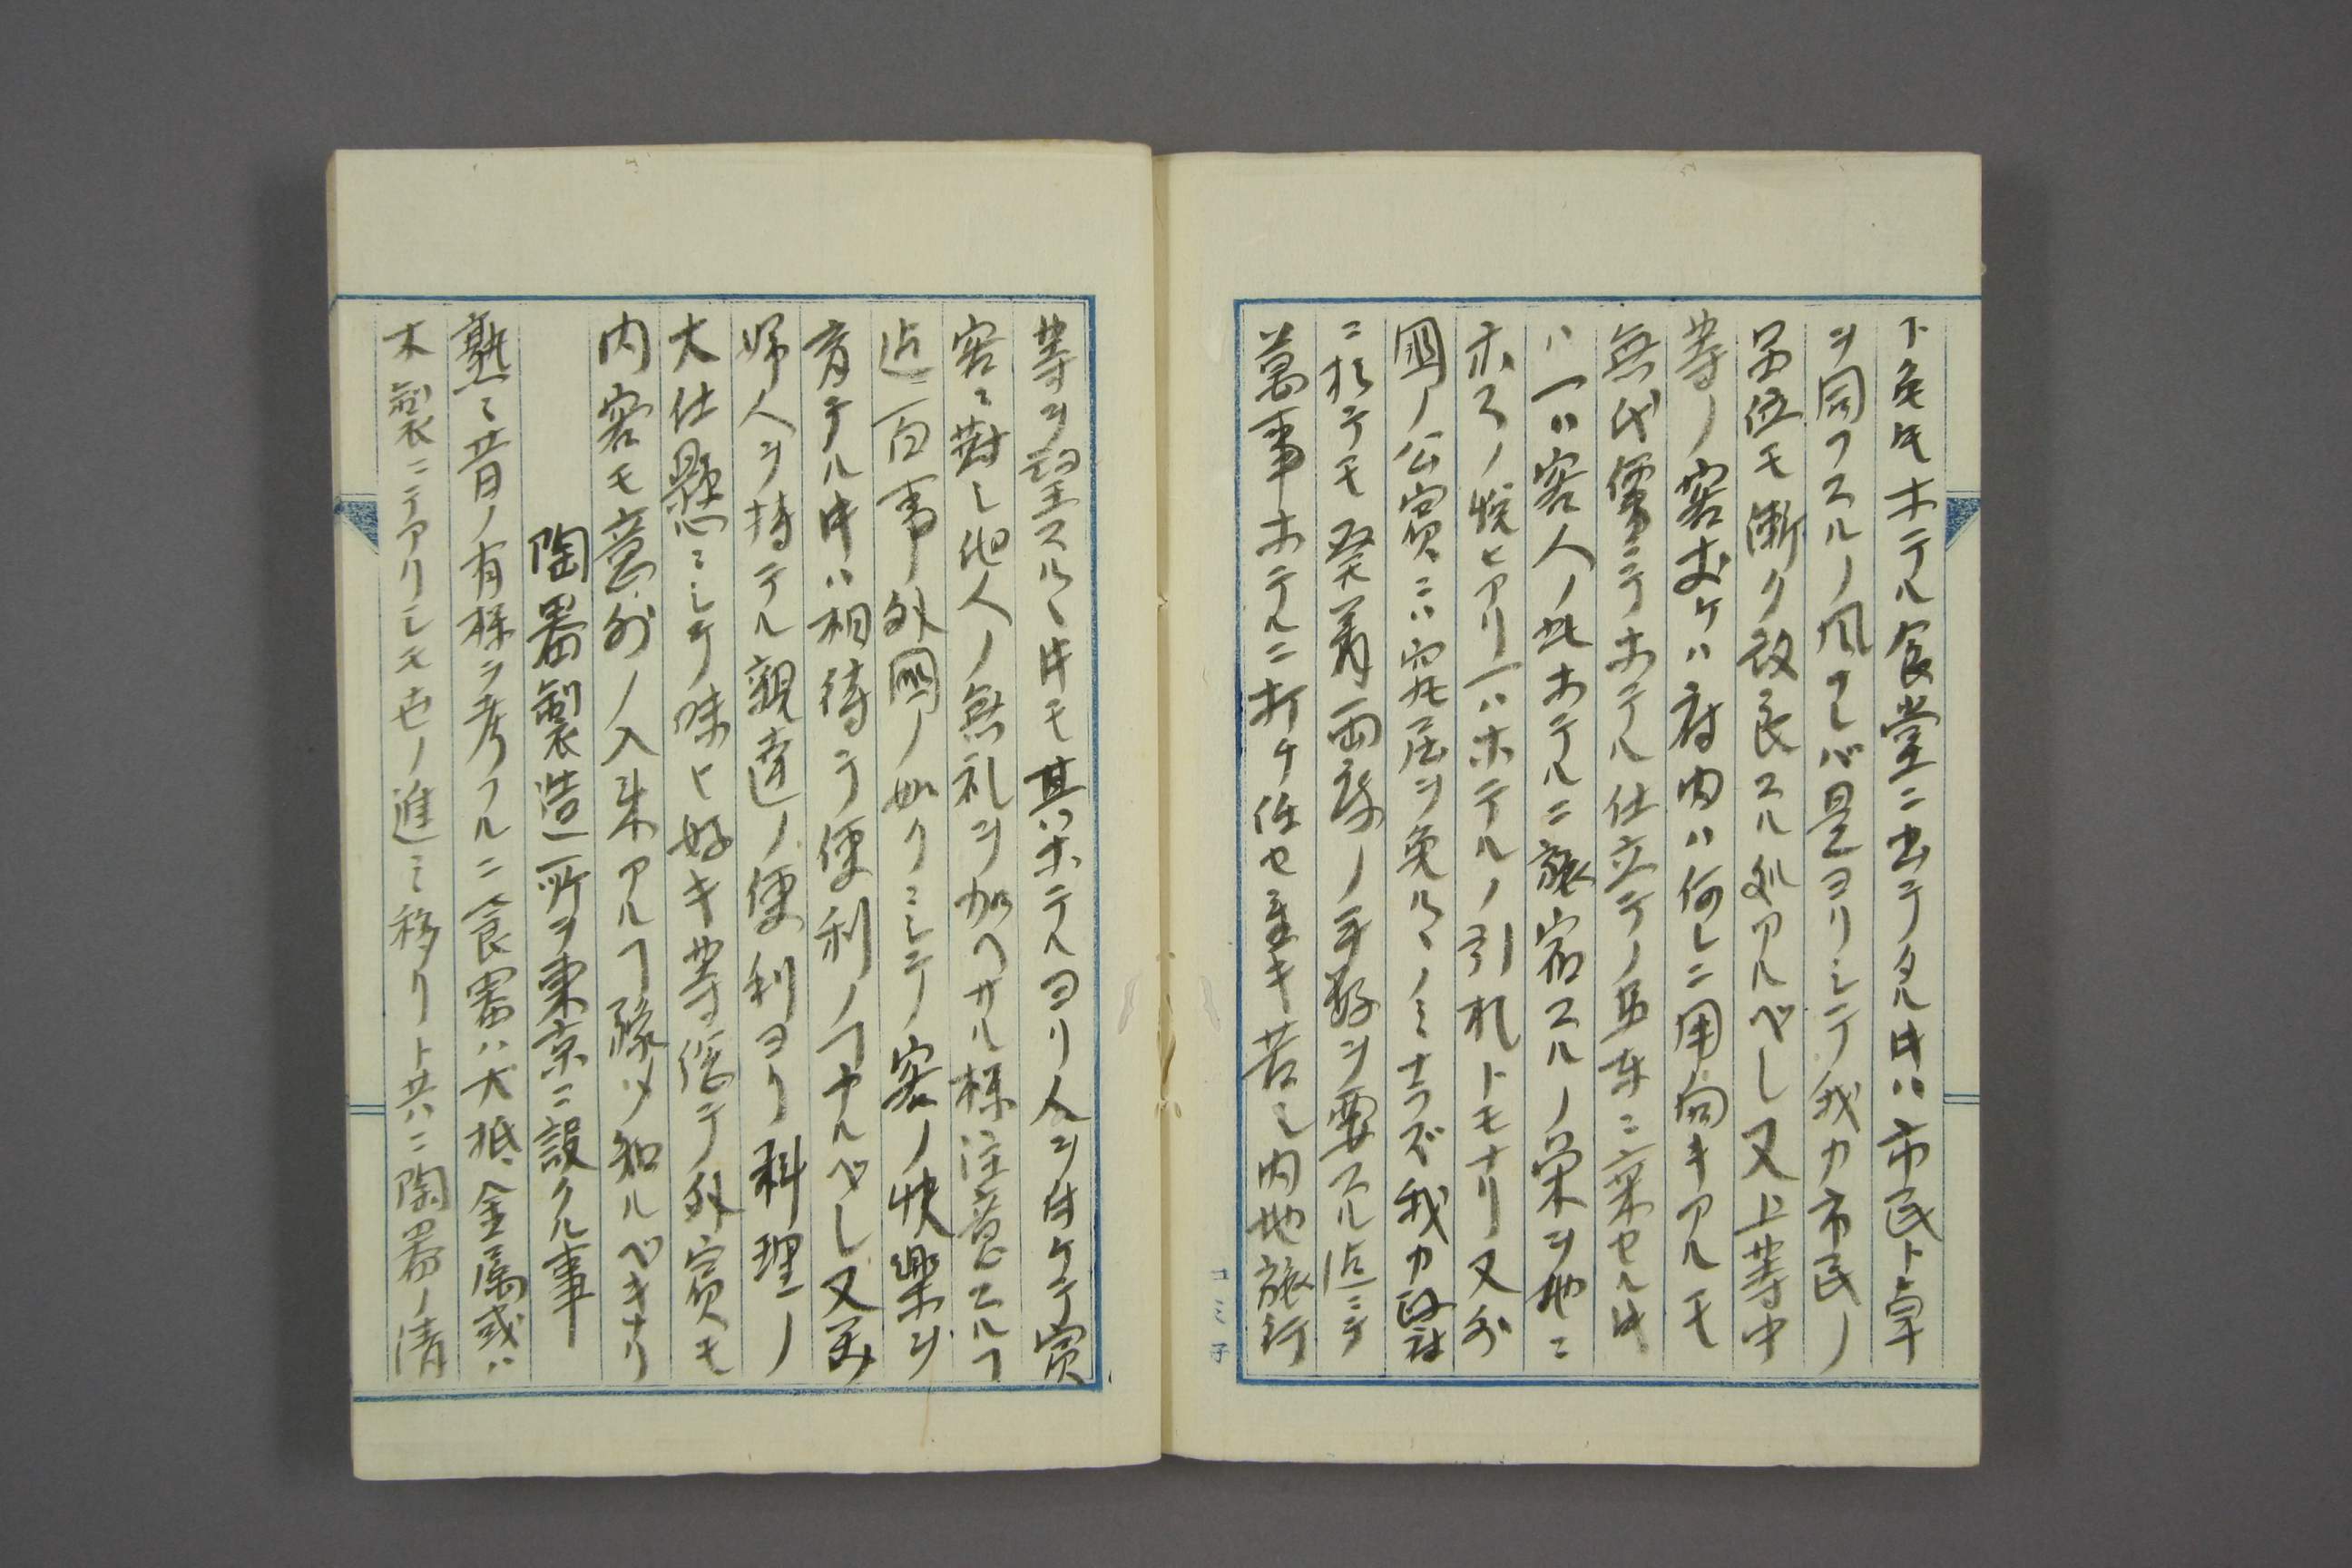 ト雖モホテル食堂ニ出テタル時ハ市民ト卓
ヲ同フスルノ風ナレバ是ヨリシテ我カ市民ノ
品位モ漸ク改良スル処アルベし又上等中
等ノ客ナケハ府内ハ何レニ用向キアルモ
無代價ニテホテル仕立テノ馬車ニ乗セル時
ハ一ハ客人ノ此ホテルニ旅宿スルノ栄ヲ他ニ
ホスノ悦ヒアリ一ハホテルノ引札トモナリ又外
國ノ公賓ニハ窮屈ヲ免ルヽノミナラズ我カ政府
ニ於テモ發着両度ノ手数ヲ要スル迄ニテ
萬事ホテルニ打チ任セ置キ若シ内地旅行
等ヲ望スルヽ時モ其ホテルヨリ人ヲ付ケテ賓
客ニ對し他人ノ無礼ヲ加ヘサル様注意スルヿ
迄百事外國ノ如クニシテ客ノ快楽ヲ
育テル時ハ相待テ便利ノヿナルベし又美
婦人ヲ持テル親達ノ便利ヨリ料理ノ
大仕懸ニシテ味ヒ好キ等従テ外賓モ
内客モ意外ノ入来アルヿ豫ツ知ルベキナリ
陶器製造所ヲ東京ニ設クル事
熟〻昔ノ有様ヲ考フルニ食器ハ大抵金属或ハ
木製ニテアリシモ世ノ進ミ移リト共ニ陶器ノ清
コミ子